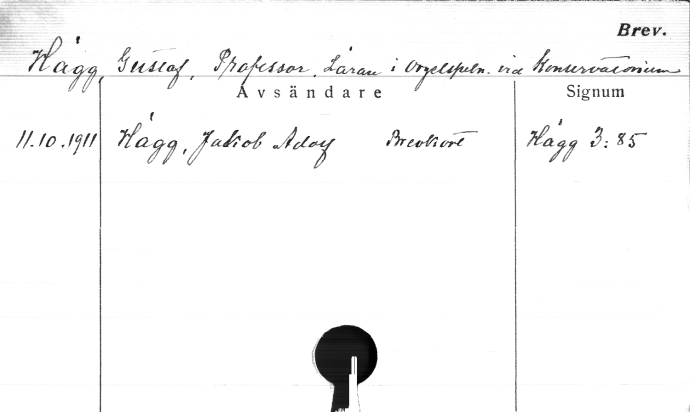 Brev.
Hägg, Gustaf, Professor. Lärare i orgelspeln. vid Konservatorium
Avsändare Signum
11.10.1911 Hägg, Jakob Adolf Brevkort Hägg 3:85